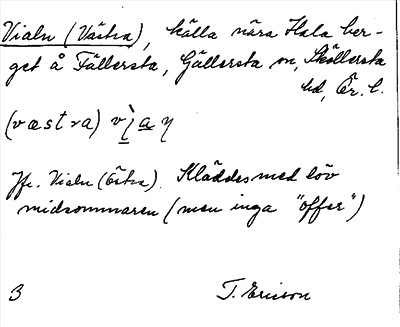 Vialn (Västra), källa nära Hala ber-
get å Fällersta, Gällersta sn, Sköllersta
hd, Ör. l.
(væstra) v i ̀ a ɳ
Jfr. Vialn (Östra). Kläddes med löv
midsommaren (men inga "offer")
3 T. Ericson